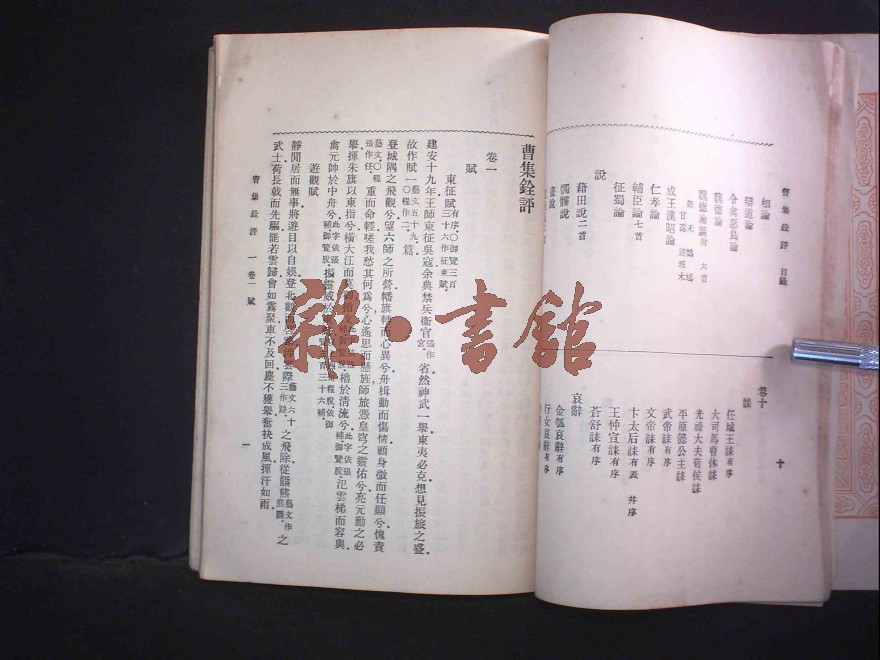 曹集銓評 目錄
十
相論
辯道論
令禽惡鳥論
魏德論
魏德論謳 六首
成王漢昭論
仁孝論
輔臣論七首
征蜀論
說
藉田說二首
髑髏說
卷十
誄
任城王誄有序
大司馬曹休誄
光祿大夫荀侯誄
平原懿公主誄
武帝誄有序
文帝誄有序
卞太后誄有表 幷序
王仲宣誄有序
蒼舒誄有序
哀辭
金瓠哀辭有序
行女哀辭有序
曹集銓評
卷一
賦
東征賦有序。〇御覽三百三十六作征東賦。
建安十九年王師東征吳寇余典禁兵衞官張作宮。省然神武一舉東夷必克想見振旅之盛
故作賦一藝文五十九。〇程作二。篇
登城隅之飛觀兮望六師之所營幡旗轉而心異兮舟楫動而傷情顧身微而任顯兮愧責
藝文。〇程張作任。重而命輕嗟我愁其何爲兮心遙思而懸旌師旅憑皇穹之靈佑兮亮元勳之必
舉揮朱旗以東指兮橫大江而莫御循戈櫓於清流兮此字依張補御覽脫。氾雲梯而容與
禽元帥於中舟兮此字依張補御覽脫。振靈威於
遊觀賦
靜閒居而無事將遊目以自娛登北觀而啓路涉雲際藝文六十三作路。之飛除從熊藝文作羆。之
武士荷長戟而先驅罷若雲歸會如霧聚車不及回塵不獲舉奮袂成風揮汗如雨
曹集銓評 一 卷一 賦
一
雜·書館